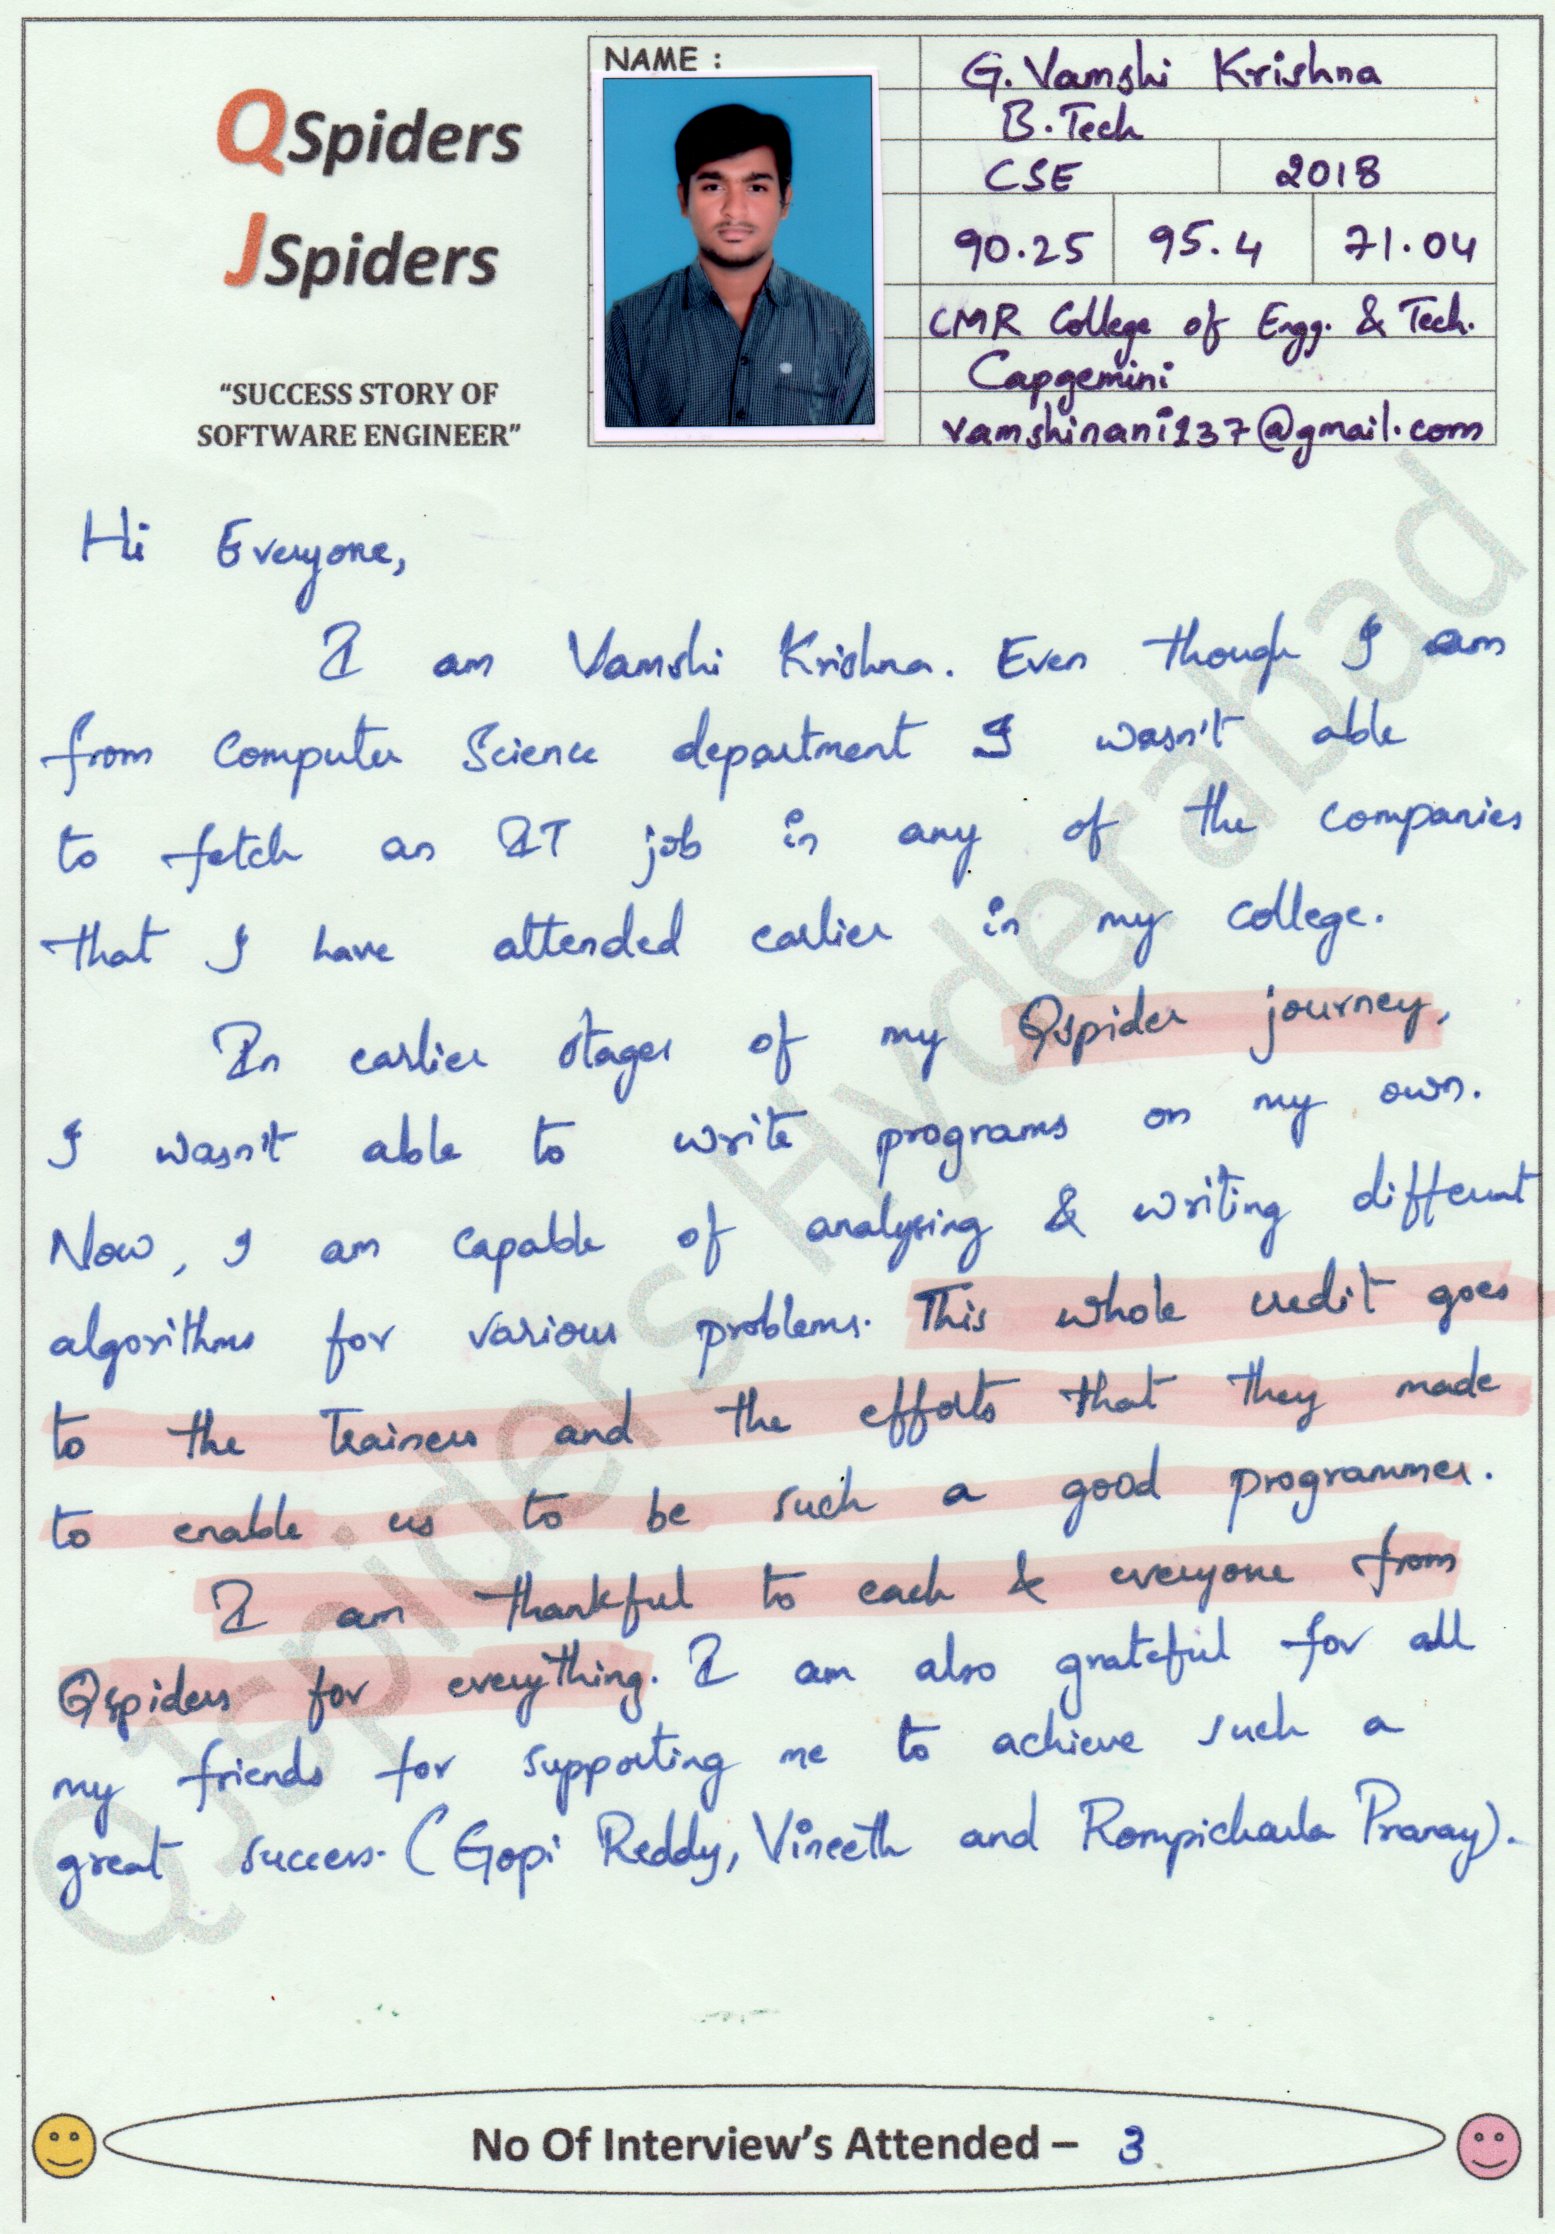 QSpiders
JSpiders
“SUCCESS STORY OF
SOFTWARE ENGINEER”
NAME :
G. Vamshi Krishna
B.Tech
CSE 2018
90.25 95.4 71.04
CMR College of Engg. & Tech.
Capgemini
vamshinani237@gmail.com
Hi Everyone,
I am Vamshi Krishna. Even though I am
from Computer Science department I wasn't able
to fetch an IT job in any of the companies
that I have attended earlier in my college.
In earlier stages of my Qspider journey,
I wasn't able to write programs on my own.
Now, I am capable of analysing & writing different
algorithms for various problems. This whole credit goes
to the Trainers and the efforts that they made
to enable us to be such a good programmer.
I am thankful to each & everyone from
Qspiders for everything. I am also grateful for all
my friends for supporting me to achieve such a
great success. (Gopi Reddy, Vineeth and Rompicharla Pranay).
QJspiders Hyderabad
No Of Interview’s Attended – 3